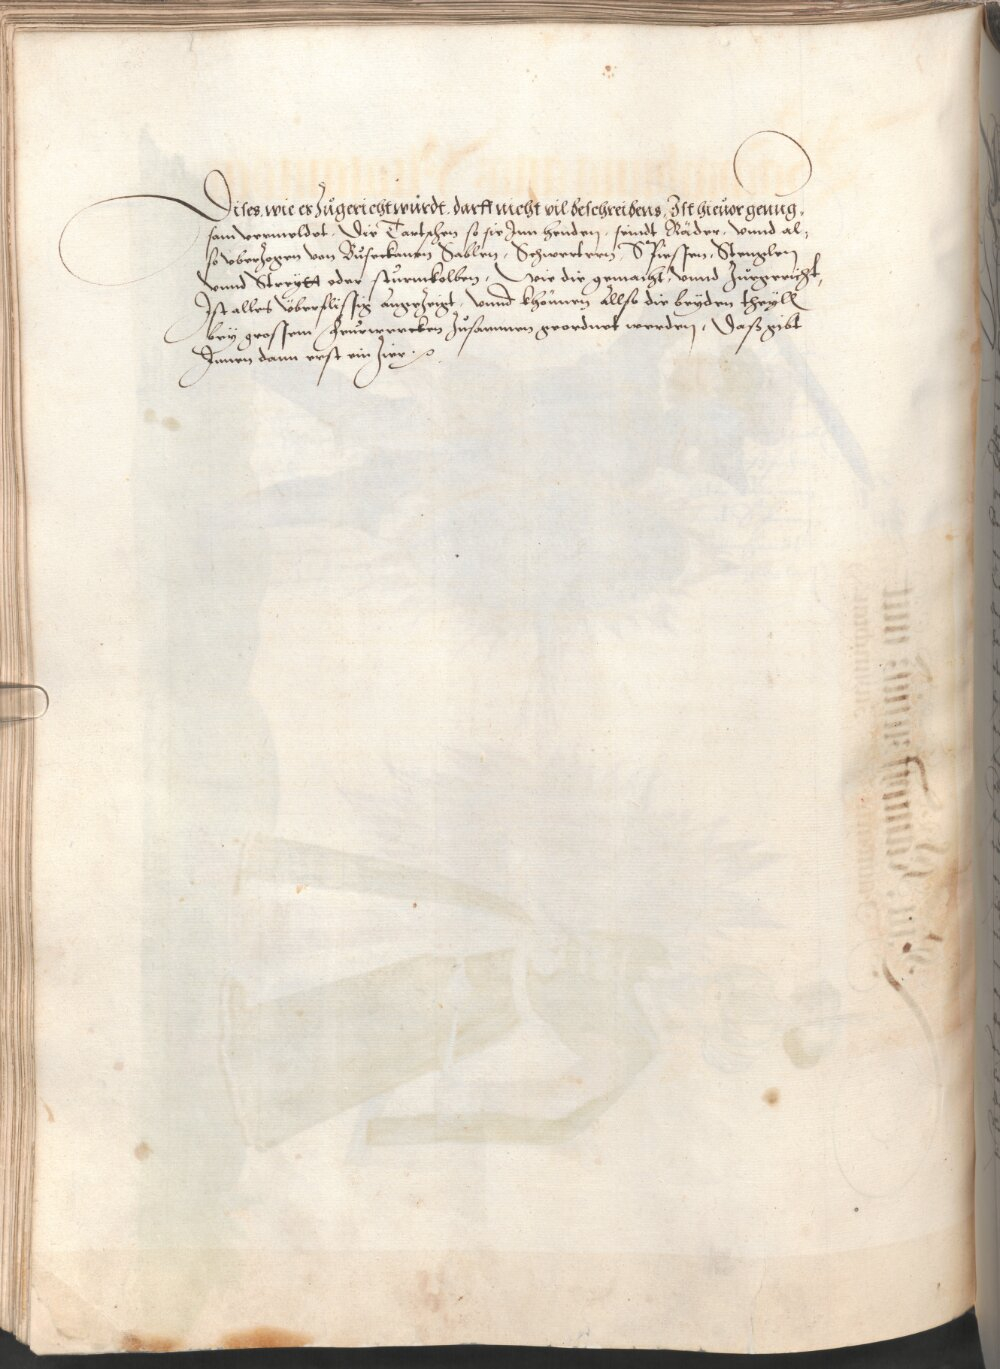 Dises, wie es Zůgericht würdt, darff nicht vil beschreibens, Ist hieuor genug,
sam vermeldet. Die Tartschen so sie Inn henden, seindt Räder, vnnd al,
so vberzogen von Buseckanen Sablen, Schwerttern, Spiessen, Stenglen
vnnd Streytt oder sturmkolben, Wie die gemacht, vnnd Zůgericht,
Ist alles überflüssig angezeigt, vnnd khönnen Allso die beyden theyll
bey grossem feurwercken Zůsammen geordnet werden, Daß gibt
Innen dann erst ein Zier.